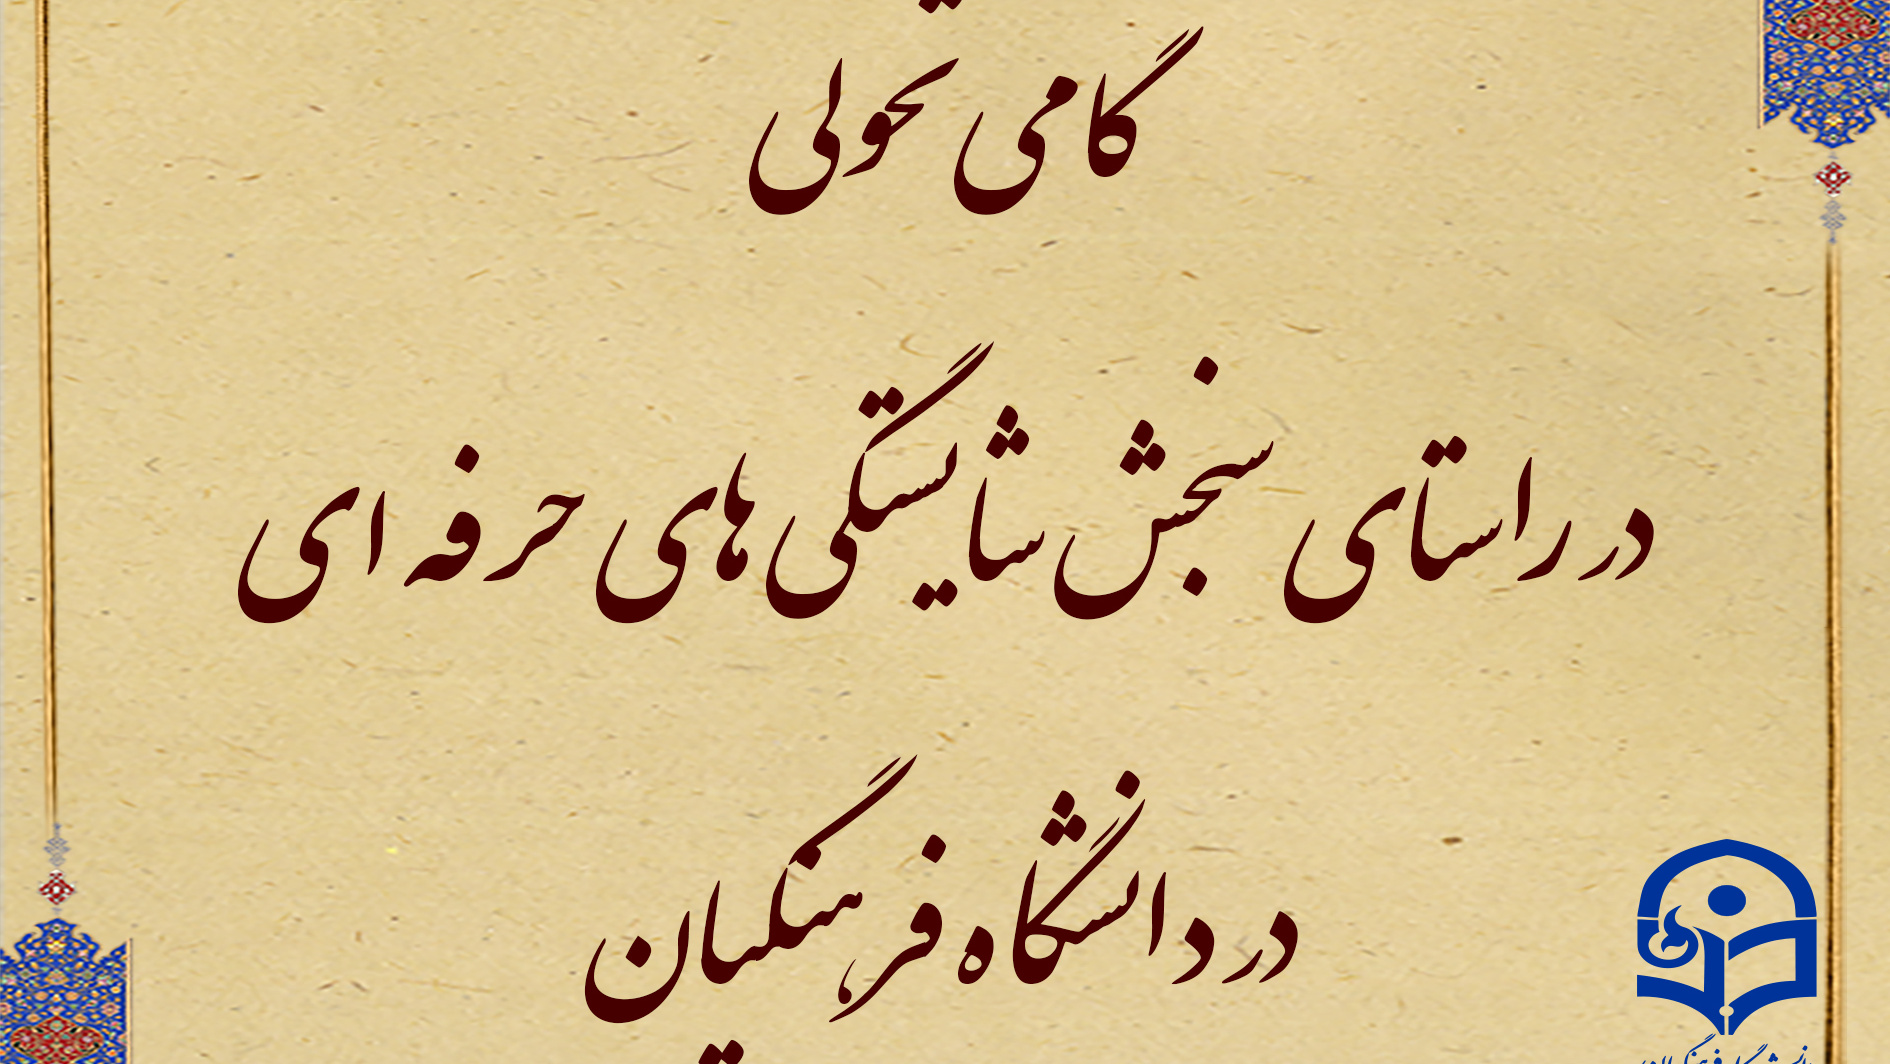 گامی تحولی
در راستای سنجش شایستگی های حرفه ای
در دانشگاه فرهنگیان